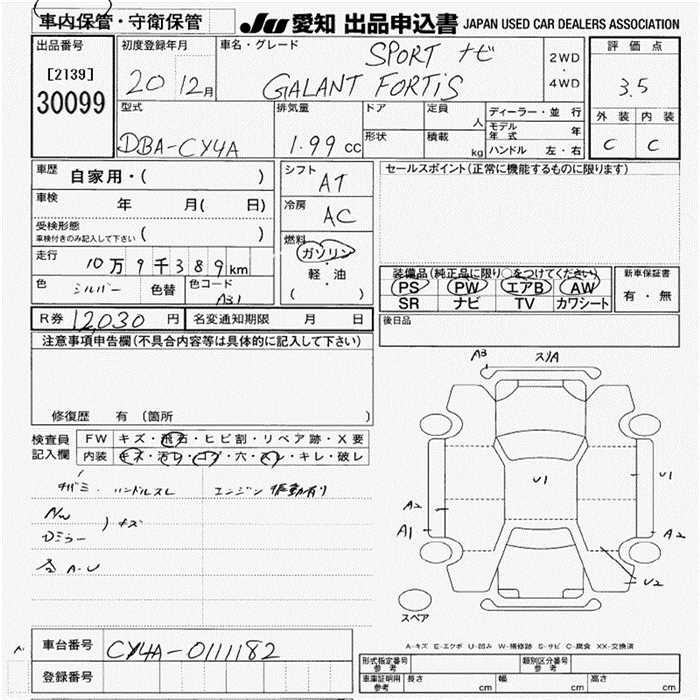 車内保管・守衛保管
JU 愛知 出品申込書 JAPAN USED CAR DEALERS ASSOCIATION
出品番号
[2139]
30099
初度登録年月
20 12月
車名・グレード
SPORT ナビ
GALANT FORTIS
2WD
・
4WD
評価点
3.5
外装 内装
C C
型式
DBA-CY4A
排気量
1.99 cc
ドア
形状
定員 人
積載 kg
ディーラー・並行
モデル年式 年
ハンドル 左・右
車歴 自家用・( )
車検 年 月( 日)
受検形態
車検付きのみ記入して下さい ( )
走行 10万9千389km
色 シルバー 色替 色コード A31
シフト AT
冷房 AC
燃料
ガソリン
・
軽・油
( )
セールスポイント(正常に機能するものに限ります)
装備品(純正品に限り○をつけてください)
PS PW エアB AW
SR ナビ TV カワシート
新車保証書
有・無
R券 12,030 円 名変通知期限 月 日
後日品
注意事項申告欄(不具合内容等は具体的に記入して下さい)
修復歴 有 (箇所 )
検査員記入欄
FW キズ・飛石・ヒビ割・リペア跡・X要
内装 キズ・汚レ・コゲ・穴・スレ・キレ・破レ
ハンドルスレ エンジン振動有り
キズ
A・U
A3 スリA
U1
U1
A2
A1
A2
U2
スペア
A-キズ E-エクボ U-凹み W-補修跡 S-サビ C-腐食 XX-交換済
車台番号 CY4A-0111182
登録番号
形式指定番号 参考
類別区分番号 参考
車庫証明用 参考 長さ cm 幅 cm 高さ cm